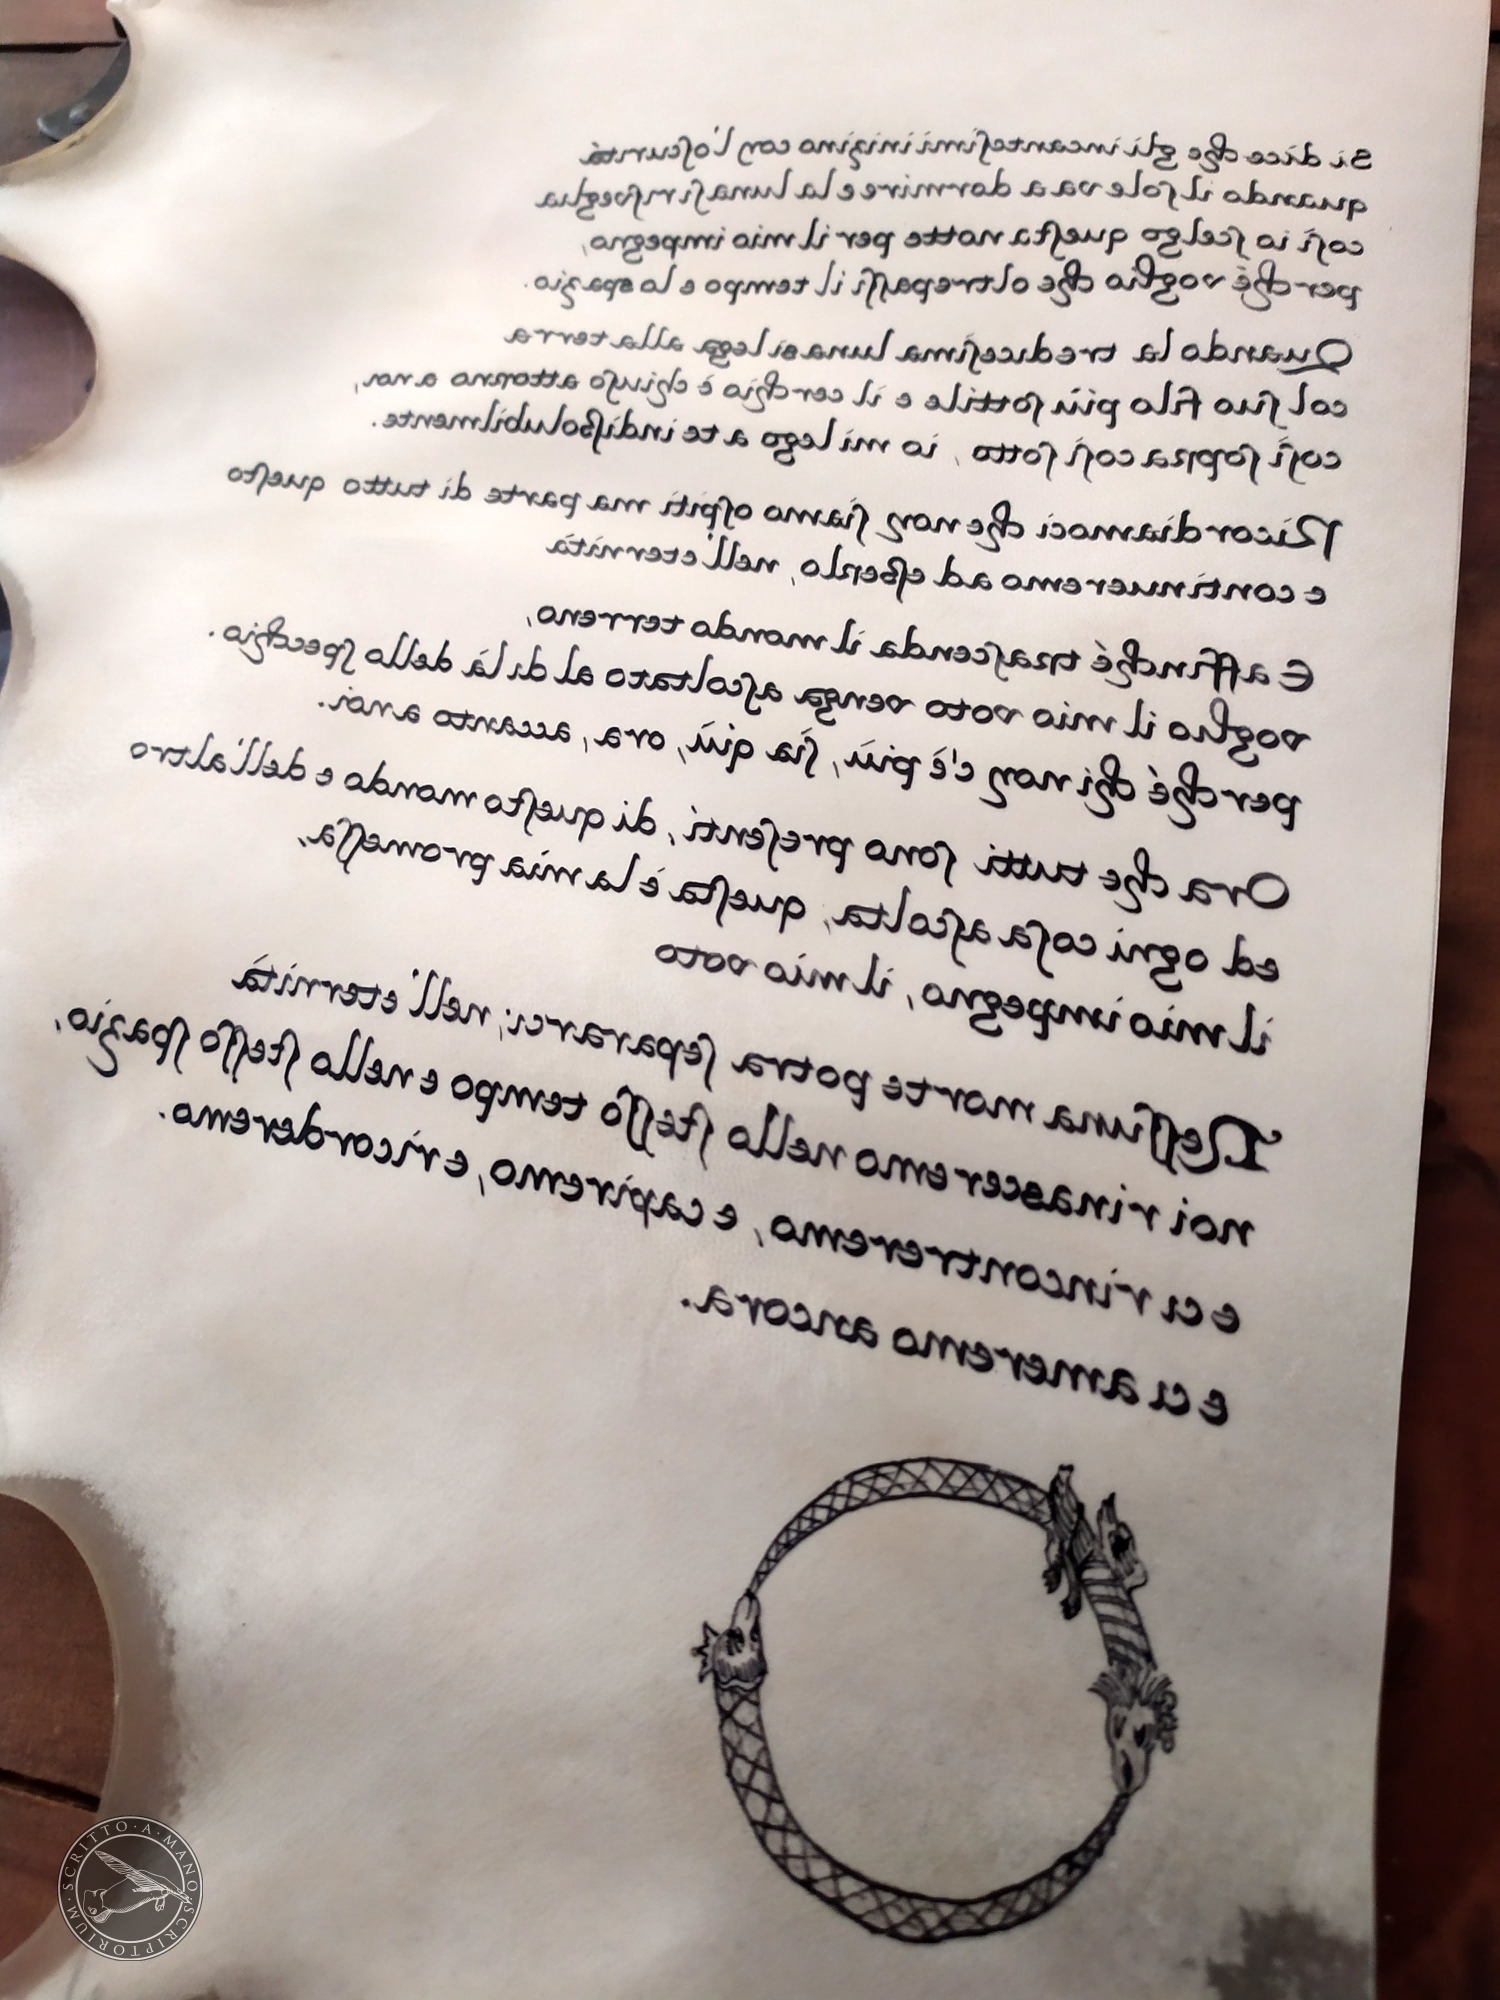 Si dice che gli incantesimi inizino con l'oscurità
quando il sole va a dormire e la luna si risveglia
così io scelgo questa notte per il mio impegno,
perché voglio che oltrepassi il tempo e lo spazio.
Quando la tredicesima luna si lega alla terra
col suo filo più sottile e il cerchio è chiuso attorno a noi,
così sopra così sotto, io mi lego a te indissolubilmente.
Ricordiamoci che non siamo ospiti ma parte di tutto questo
e continueremo ad esserlo, nell'eternità
E affinché trascenda il mondo terreno,
voglio il mio voto venga ascoltato al di là dello specchio.
perché chi non c'è più, sia qui, ora, accanto a noi.
Ora che tutti sono presenti, di questo mondo e dell'altro
ed ogni cosa ascolta, questa è la mia promessa,
il mio impegno, il mio voto
Nessuna morte potra separarci; nell'eternità
noi rinasceremo nello stesso tempo e nello stesso spazio,
e ci rincontreremo, e capiremo, e ricorderemo.
e ci ameremo ancora.
SCRITTO·A·MANO·SCRIPTORIUM·